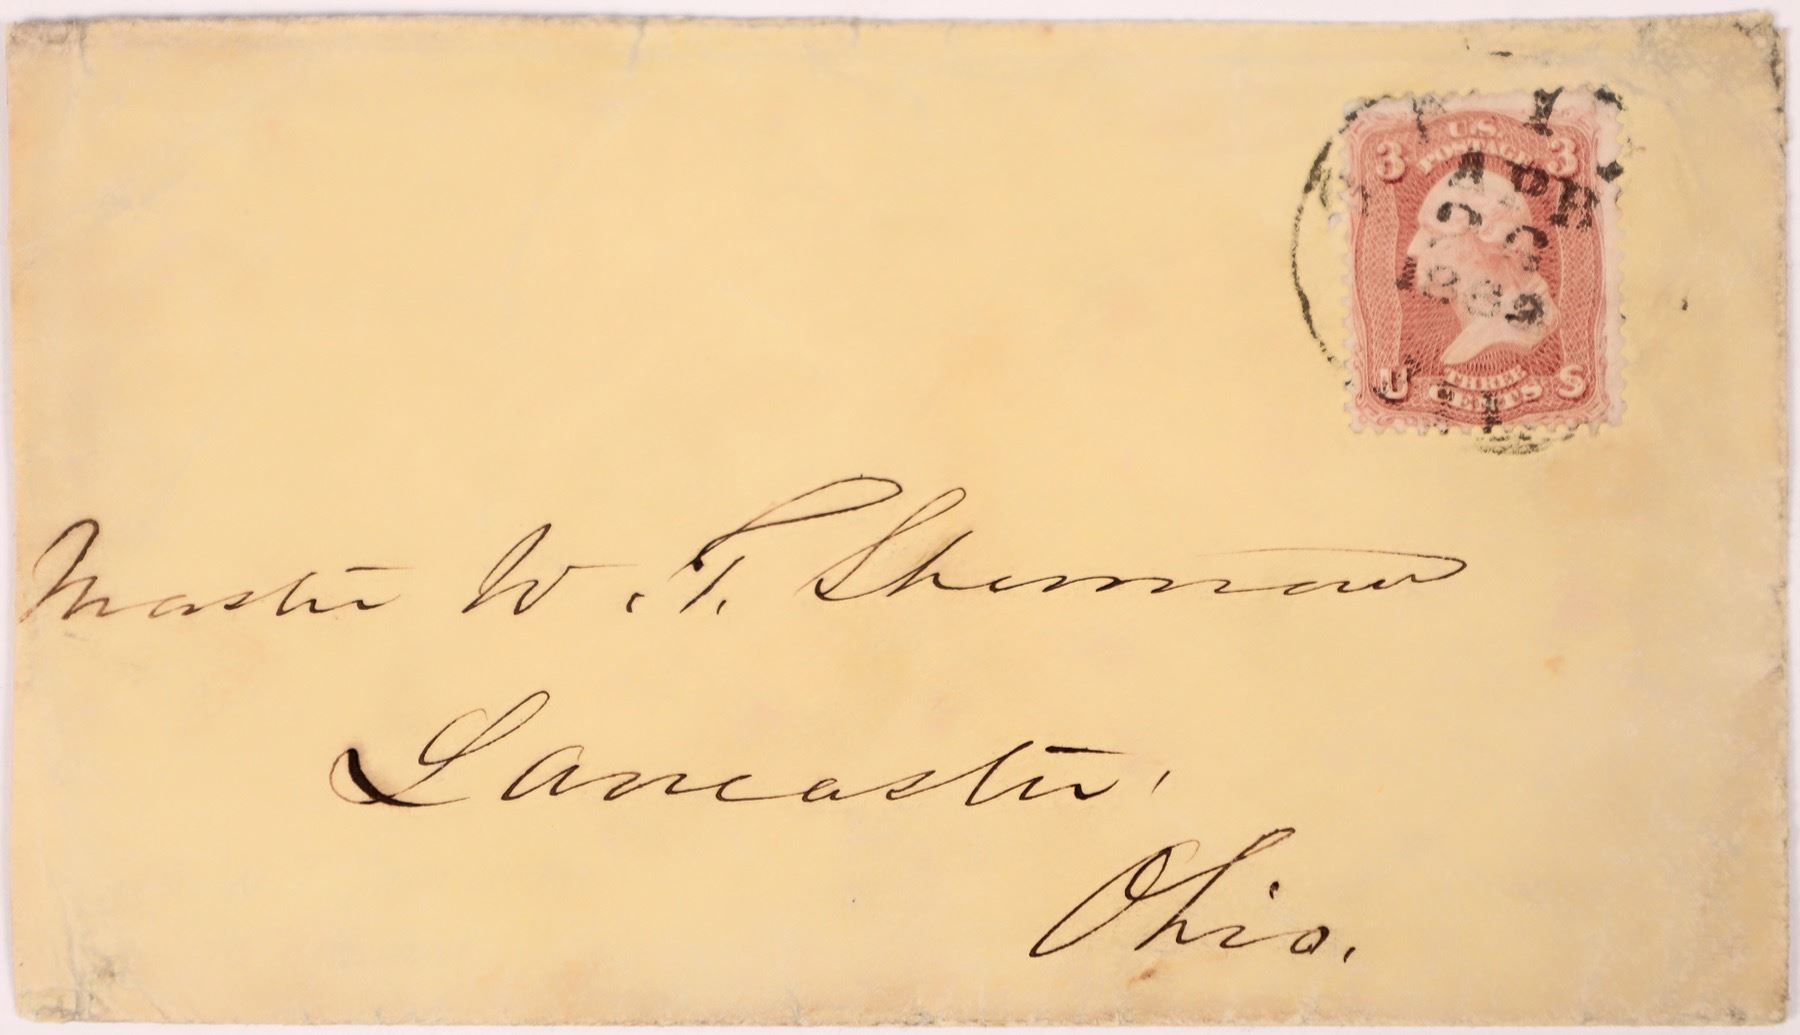 3 U.S. 3
POSTAGE
APR
26
1862
U THREE S
CENTS
Master W. T. Sherman
Lancaster,
Ohio.